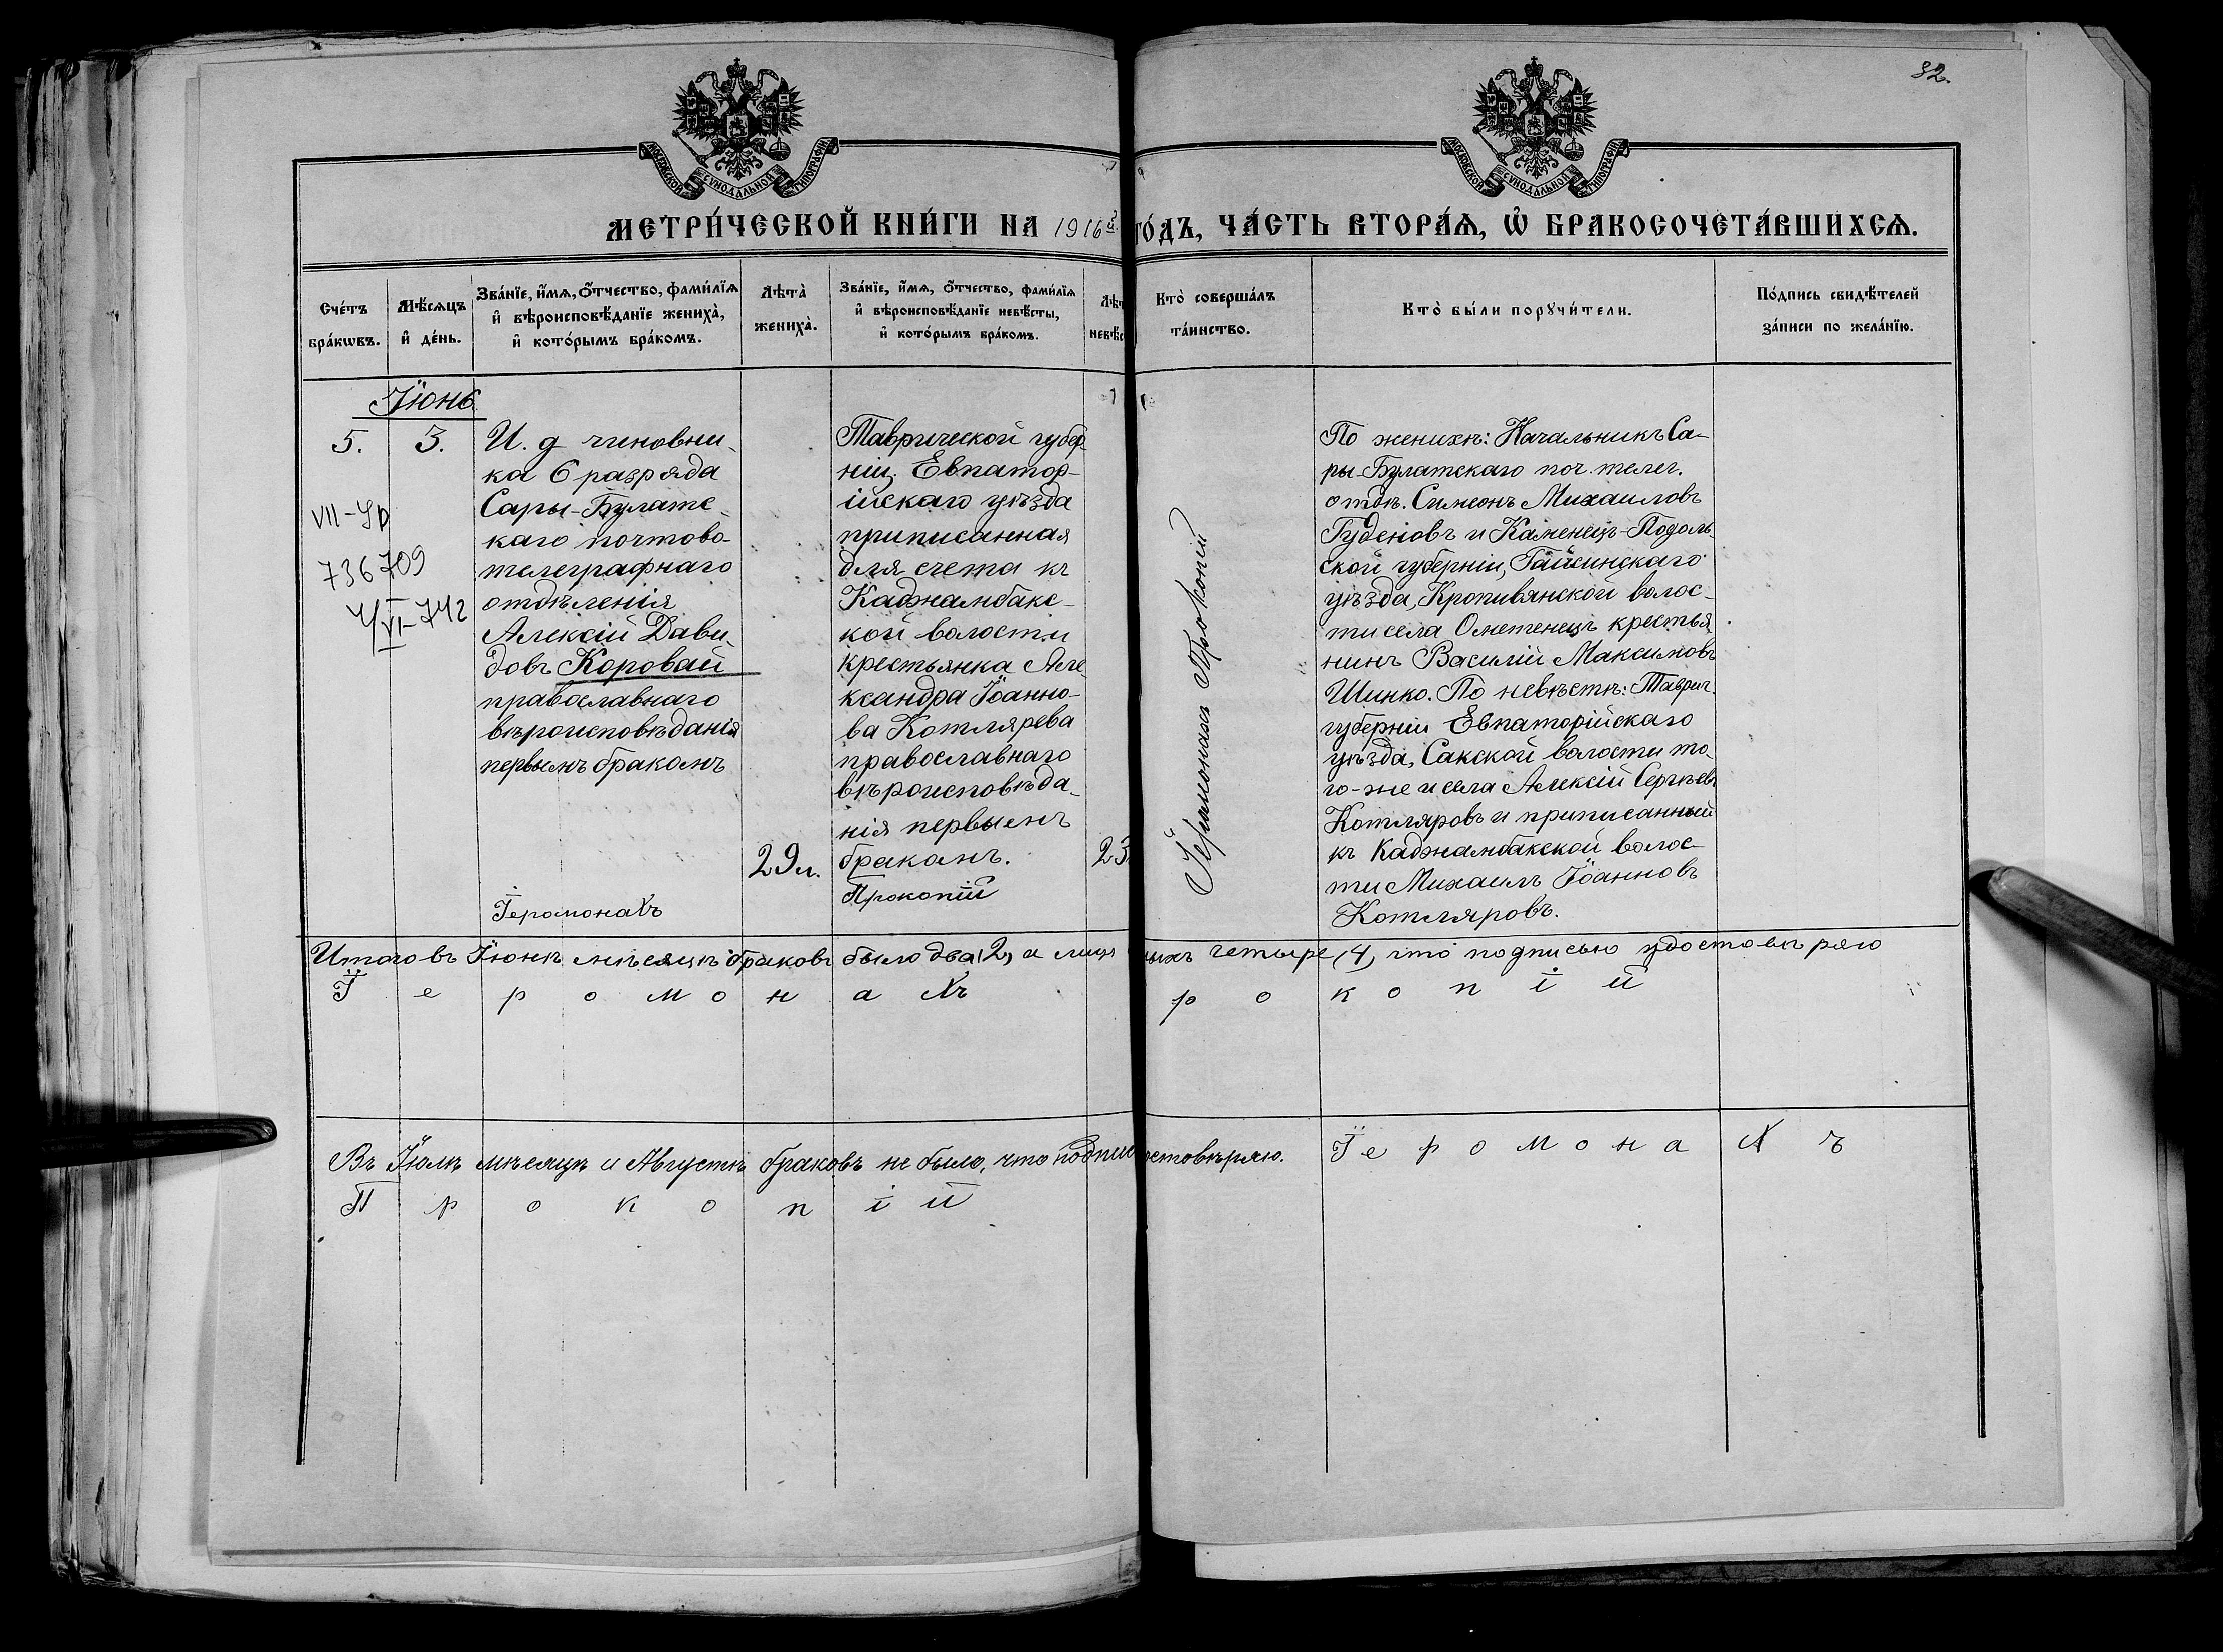 32.
МОСКОВСКОЙ СѴНОДАЛЬНОЙ ТИПОГРАФІИ
МОСКОВСКОЙ СѴНОДАЛЬНОЙ ТИПОГРАФІИ
МЕТРИ́ЧЕСКОЙ КНИ́ГИ НА 1916 й ГО́ДЪ, ЧА́СТЬ ВТОРА́Ѧ, Ѽ БРАКОСОЧЕТА́ВШИХСѦ.
Сче́тъ бра́кѡвъ.
Мѣ́сѧцъ и҆ де́нь.
Зва́нїе, и҆́мѧ, ѻ҆́тчество, фами́лїѧ и҆ вѣроисповѣ́данїе жениха̀, и҆ кото́рымъ бра́комъ.
Лѣта̀ жениха̀.
Зва́нїе, и҆́мѧ, ѻ҆́тчество, фами́лїѧ и҆ вѣроисповѣ́данїе невѣ́сты, и҆ кото́рымъ бра́комъ.
Лѣт
невѣс
Кто̀ соверша́лъ та́инство.
Кто̀ бы́ли порꙋчи́тели.
По́дпись свидѣ́телей за́писи по жела́нїю.
Іюнь
5.
3.
VII-ЯР
736709
4/VI-74г
И. д чиновни-
ка 6 разряда
Сары-Булатс-
каго почтово-
телеграфнаго
отдѣленія
Алексій Дави-
довъ Коровай
православнаго
вѣроисповѣданія
первымъ бракомъ
29 л.
Іеромонахъ
Таврической губер-
ніи, Евпатор-
ійскаго уѣзда
приписанная
для счета къ
Каджамбакс-
кой волости
крестьянка Але-
ксандра Іоанно-
ва Котлярева
православнаго
вѣроисповѣда-
нія первымъ
бракомъ.
Прокопій
23
Іеромонахъ Прокопій
По женихѣ: Начальникъ Са-
ры-Булатскаго поч. телег.
отдѣ. Симеонъ Михаиловъ
Гуденовъ и Каменецъ-Подоль-
ской губерніи, Гайсинскаго
уѣзда, Кропивянской волос-
ти села Ометенецъ крестья-
нинъ Василій Максимовъ
Шинко. По невѣстѣ: Таврич.
губерніи Евпаторійскаго
уѣзда, Сакской волости то-
го-же и села Алексій Сергѣевъ
Котляровъ и приписанный
къ Каджамбакской волос-
ти Михаилъ Іоанновъ
Котляровъ.
Итого въ Іюнѣ мѣсяцѣ браковъ было два (2) а лицъ ныхъ четыре (4) что подписью удостовѣряю
І е р о м о н а хъ р о к о п і й
Въ Іюлѣ мѣсяцѣ и Августѣ браковъ не было, что подпис остовѣряю. І е р о м о н а х ъ
П р о к о п і й